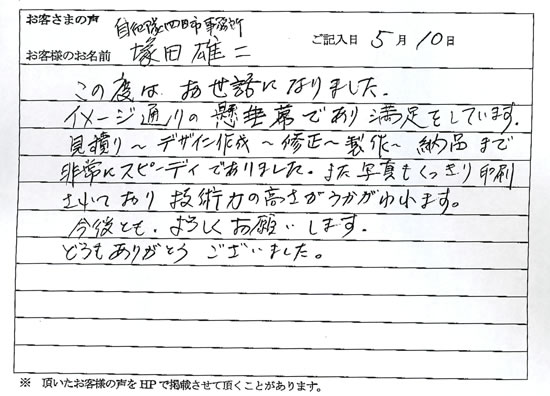 お客さまの声 自衛隊四日市事務所
お客様のお名前 塚田雄二 ご記入日 5月10日
この度は、お世話になりました。
イメージ通りの懸垂幕であり満足をしています。
見積り〜デザイン作成〜修正〜製作〜納品まで
非常にスピーディでありました。また写真もくっきり印刷
されており技術力の高さがうかがわれます。
今後とも、よろしくお願いします。
どうもありがとうございました。
※ 頂いたお客様の声をHPで掲載させて頂くことがあります。